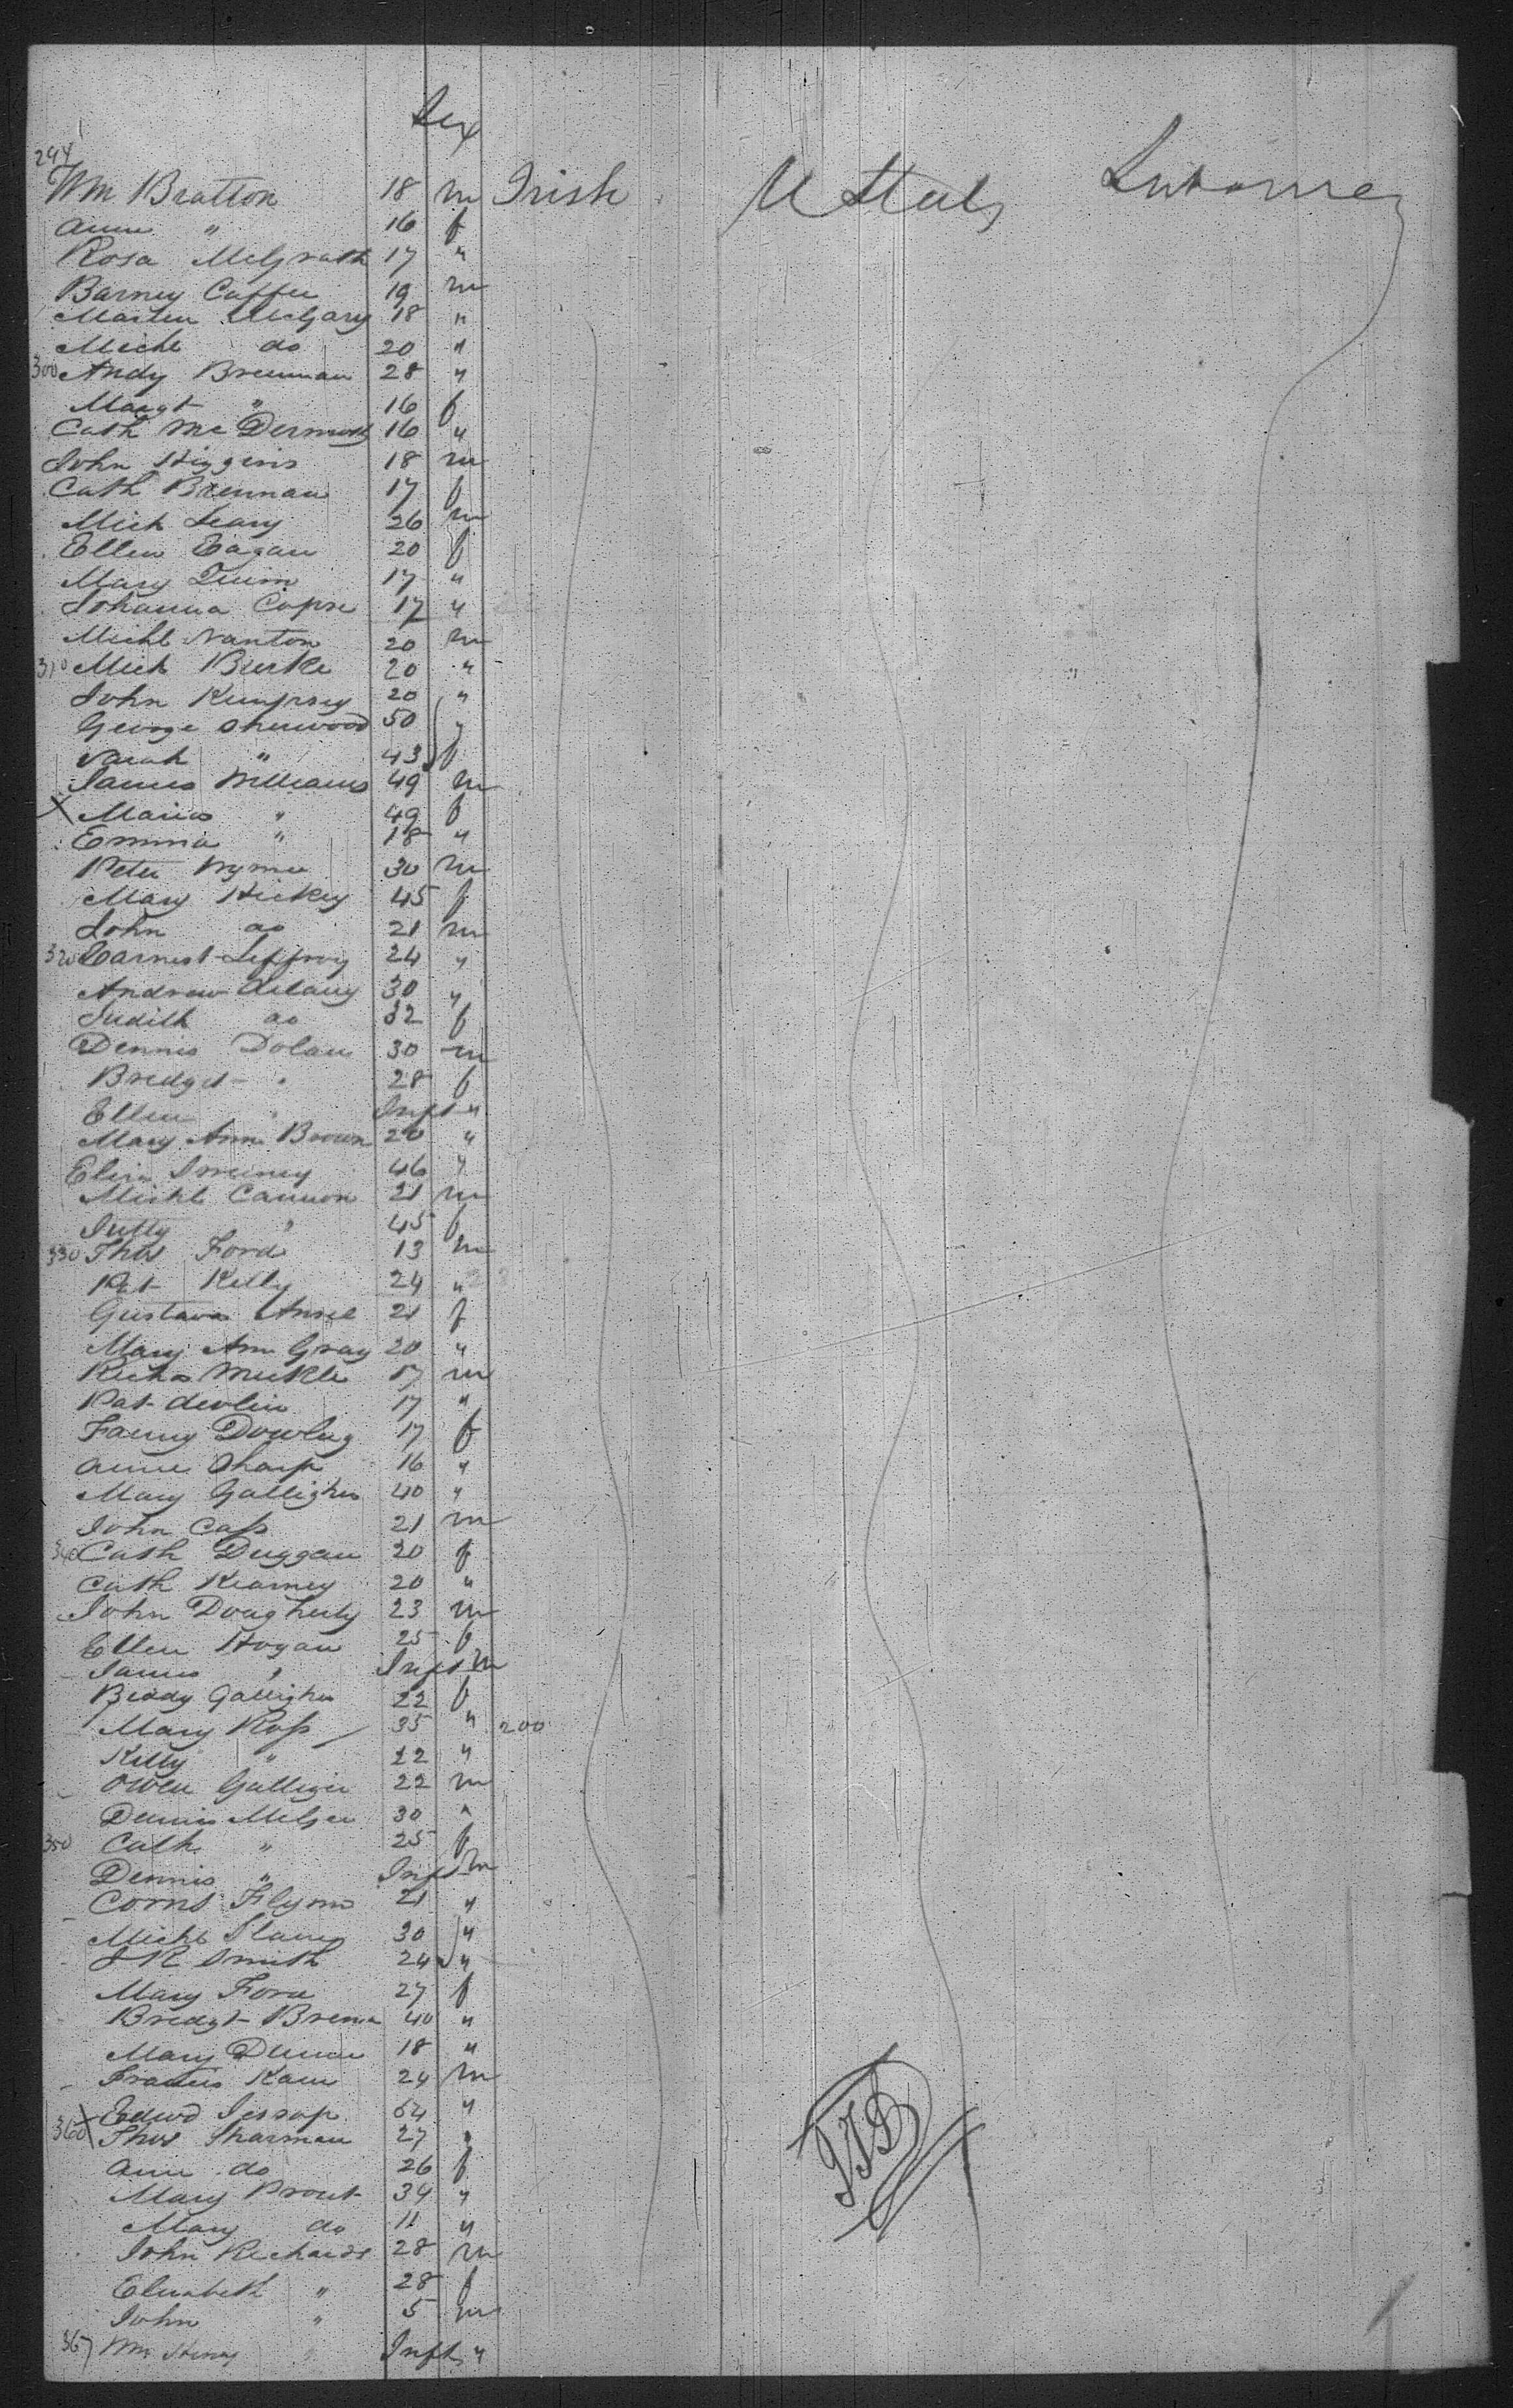 Sex
294
Wm Bratton 18 m Irish U States Labourer
Ann " 16 f
Rosa McGrath 17 "
Barney Caffee 19 m
Marten McGary 18 "
Michl do 20 "
300 Andy Brennan 28 "
Margt " 16 f
Cath Mc Dermott 16 "
John Higgins 18 m
Cath Brennan 17 f
Mich Leary 26 m
Ellen Eagan 20 f
Mary Quinn 17 "
Johanna 17 "
Michl Nanton 20 m
310 Mich Burke 20 "
John 20 "
George Sherwood 50 "
Sarah " 43 f
James Williams 49 m
X Maria " 49 f
Emma " 18 "
Peter 30 m
Mary Hickey 45 f
John do 21 m
320 Earnest 24 "
Andrew 30 "
Judith do 32 f
Dennis Dolan 30 m
Bridget " 28 f
Ellen " Inft "
Mary Ann Brown 20 "
Eliza Sweeney 46 "
Michl Cannon 21 m
" 45 f
330 Thos Ford 13 m
Pat Kelly 24 "
Gustava 21 f
Mary Ann Gray 20 "
Richd Meikle 17 m
Pat devlin 17 "
Fanny Dowling 17 f
Anne Sharp 16 "
Mary Galligher 40 "
John Cass 21 m
340 Cath Duggan 20 f
Cath Kearney 20 "
John Dougherty 23 m
Ellen Hogan 25 f
James " Inft m
Biddy Galligher 22 f
Mary Ross 35 " 200
Kitty " 22 "
Owen Galligir 22 m
Dennis McGee 30 "
350 Cath " 25 f
Dennis " Inft m
Corns Flynn 21 "
Michl 30 "
J R Smith 24 "
Mary Ford 27 f
Bridgt 40 "
Mary 18 "
Francis Kane 24 m
X Edwd Jessop 54 "
360 Thos Sharman 27 "
Ann do 26 f
Mary Prout 34 "
Mary do 11 "
John Richards 28 m
Elizabeth " 28 f
John " 5 m
367 Wm Henry " Inft "